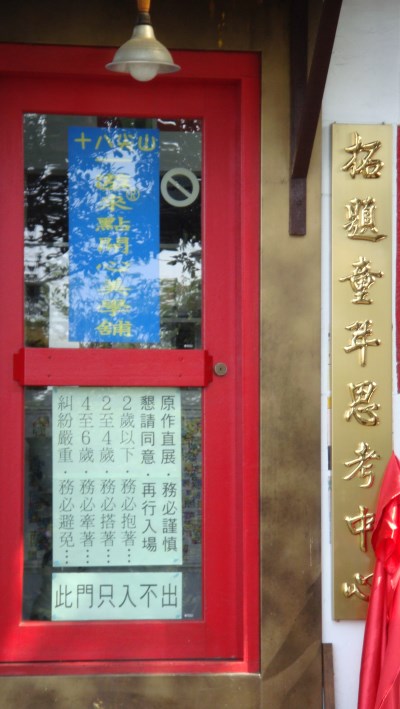 十八尖山
一來點開心美學舖
原作直展．務必謹慎
懇請同意．再行入場
2歲以下．務必抱著…
2至4歲．務必搭著…
4至6歲．務必牽著…
糾紛嚴重．務必避免…
此門只入不出
拓題童年思考中心